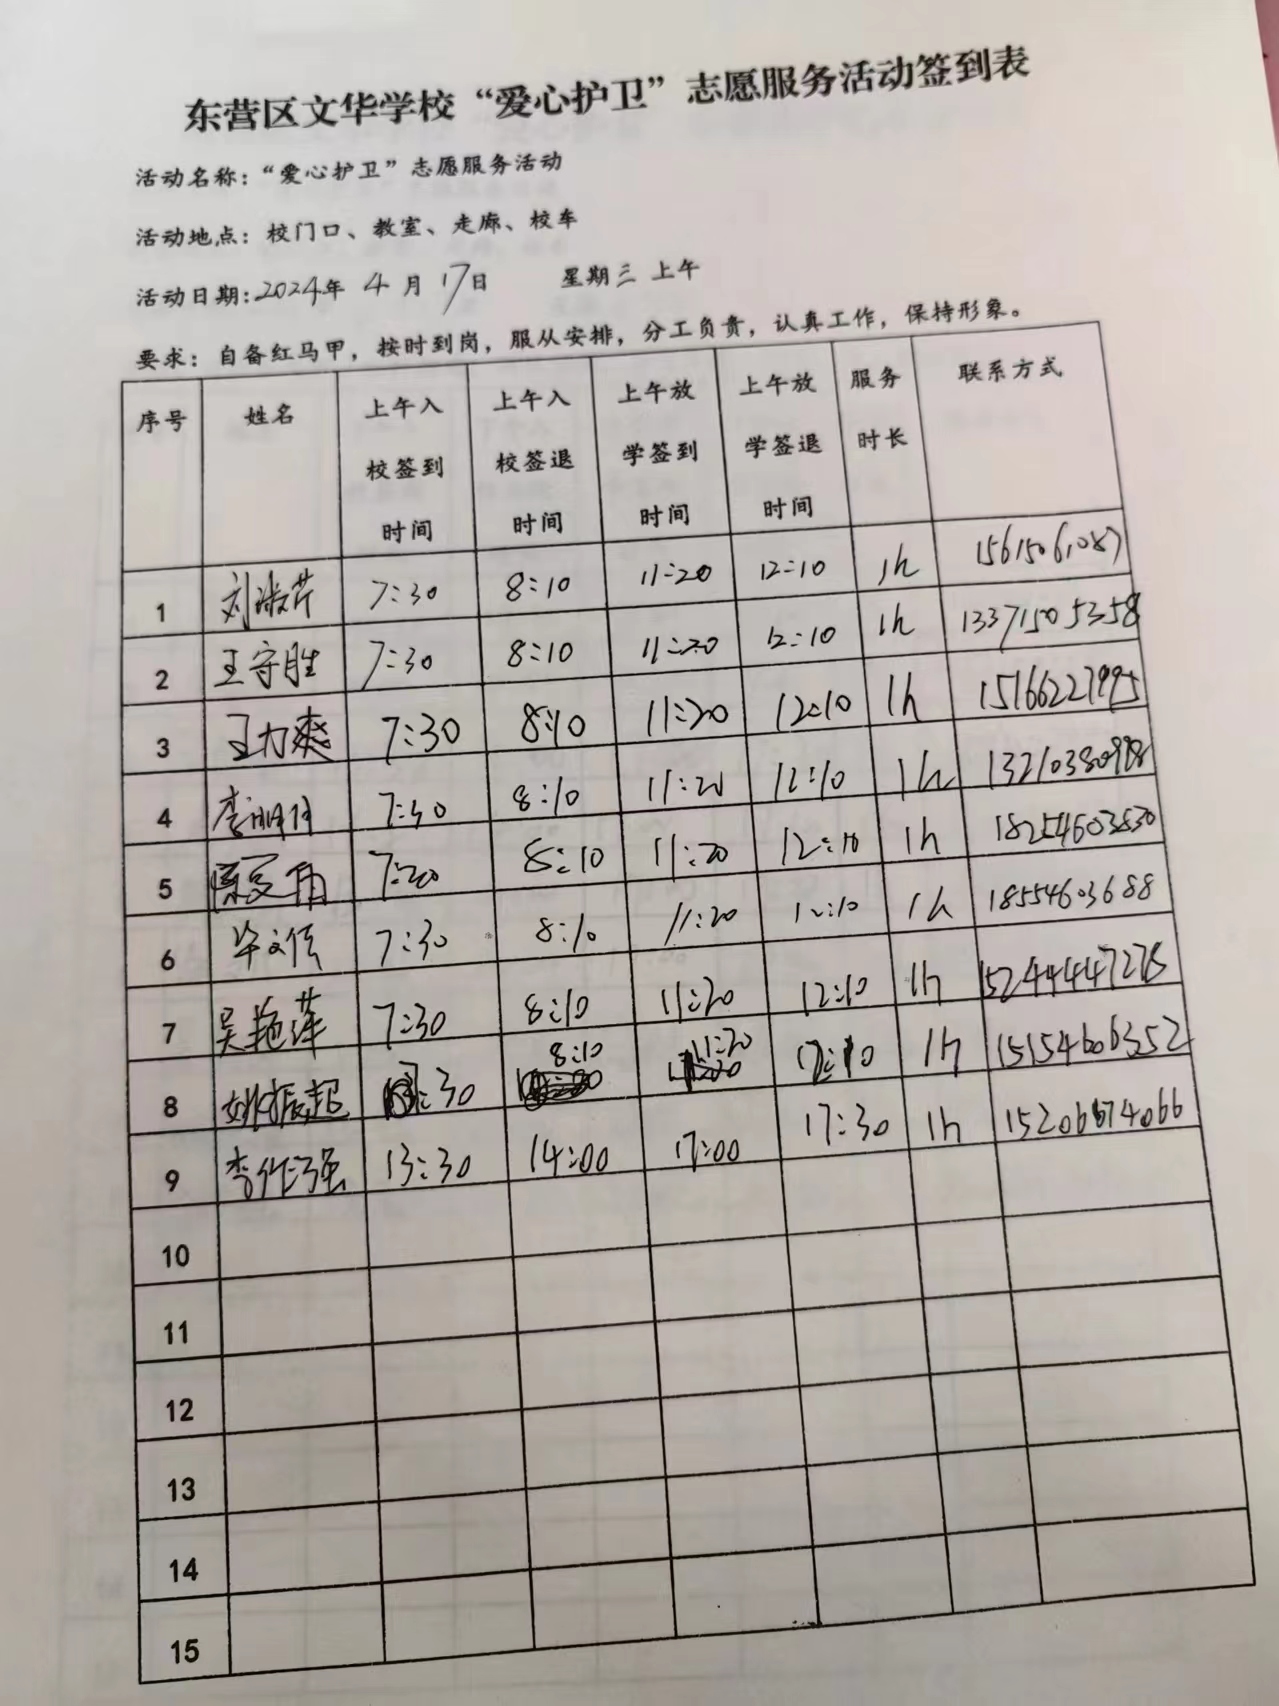 东营区文华学校“爱心护卫”志愿服务活动签到表
活动名称：“爱心护卫”志愿服务活动
活动地点：校门口、教室、走廊、校车
活动日期：2024年 4 月 17日 星期三 上午
要求：自备红马甲，按时到岗，服从安排，分工负责，认真工作，保持形象。
序号 姓名 上午入校签到时间 上午入校签退时间 上午放学签到时间 上午放学签退时间 服务时长 联系方式
1 刘淑芹 7:30 8:10 11:20 12:10 1h 15615061087
2 王守胜 7:30 8:10 11:20 12:10 1h 13371505358
3 王力爽 7:30 8:10 11:20 12:10 1h 15166227995
4 李明付 7:30 8:10 11:20 12:10 1h
5 8:10 11:20 12:10 1h 18254603830
6 毕文信 7:30 8:10 11:20 12:10 1h 18554603688
7 吴艳萍 7:30 8:10 11:20 12:10 1h
8 姚振起 7:30 8:10 11:20 12:10 1h 15154606352
9 李作强 13:30 14:00 17:00 17:30 1h 15206674066
10
11
12
13
14
15